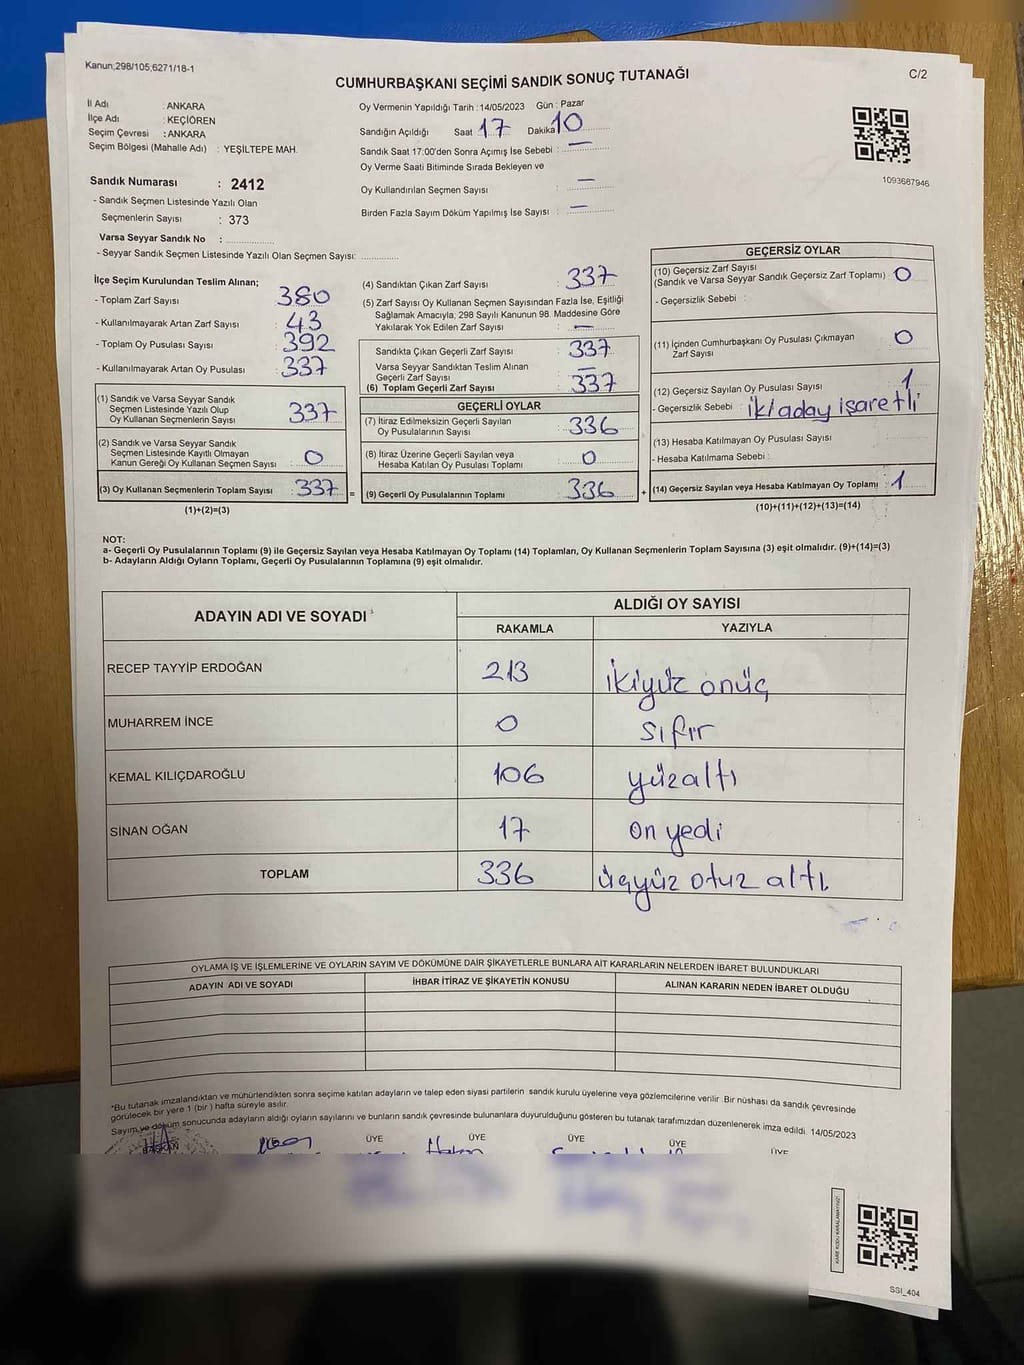 Kanun;298/105;6271/18-1
C/2
CUMHURBAŞKANI SEÇİMİ SANDIK SONUÇ TUTANAĞI
İl Adı : ANKARA
İlçe Adı : KEÇİÖREN
Seçim Çevresi : ANKARA
Seçim Bölgesi (Mahalle Adı) : YEŞİLTEPE MAH.
Oy Vermenin Yapıldığı Tarih : 14/05/2023 Gün : Pazar
Sandığın Açıldığı Saat 17 Dakika 10
Sandık Saat 17:00'den Sonra Açımış İse Sebebi : —
Oy Verme Saati Bitiminde Sırada Bekleyen ve
Oy Kullandırılan Seçmen Sayısı : —
Birden Fazla Sayım Döküm Yapılmış İse Sayısı : —
1093687946
Sandık Numarası : 2412
- Sandık Seçmen Listesinde Yazılı Olan
Seçmenlerin Sayısı : 373
Varsa Seyyar Sandık No :
- Seyyar Sandık Seçmen Listesinde Yazılı Olan Seçmen Sayısı:
İlçe Seçim Kurulundan Teslim Alınan;
- Toplam Zarf Sayısı : 380
- Kullanılmayarak Artan Zarf Sayısı : 43
- Toplam Oy Pusulası Sayısı : 392
- Kullanılmayarak Artan Oy Pusulası : 337
(1) Sandık ve Varsa Seyyar Sandık
Seçmen Listesinde Yazılı Olup
Oy Kullanan Seçmenlerin Sayısı : 337
(2) Sandık ve Varsa Seyyar Sandık
Seçmen Listesinde Kayıtlı Olmayan
Kanun Gereği Oy Kullanan Seçmen Sayısı : 0
(3) Oy Kullanan Seçmenlerin Toplam Sayısı : 337
(1)+(2)=(3)
=
(4) Sandıktan Çıkan Zarf Sayısı : 337
(5) Zarf Sayısı Oy Kullanan Seçmen Sayısından Fazla İse, Eşitliği
Sağlamak Amacıyla, 298 Sayılı Kanunun 98. Maddesine Göre
Yakılarak Yok Edilen Zarf Sayısı : —
Sandıkta Çıkan Geçerli Zarf Sayısı : 337
Varsa Seyyar Sandıktan Teslim Alınan
Geçerli Zarf Sayısı : —
(6) Toplam Geçerli Zarf Sayısı : 337
GEÇERLİ OYLAR
(7) İtiraz Edilmeksizin Geçerli Sayılan
Oy Pusulalarının Sayısı : 336
(8) İtiraz Üzerine Geçerli Sayılan veya
Hesaba Katılan Oy Pusulası Toplamı : 0
(9) Geçerli Oy Pusulalarının Toplamı : 336
+
GEÇERSİZ OYLAR
(10) Geçersiz Zarf Sayısı
(Sandık ve Varsa Seyyar Sandık Geçersiz Zarf Toplamı) : 0
- Geçersizlik Sebebi :
(11) İçinden Cumhurbaşkanı Oy Pusulası Çıkmayan
Zarf Sayısı : 0
(12) Geçersiz Sayılan Oy Pusulası Sayısı : 1
- Geçersizlik Sebebi : iki aday işaretli
(13) Hesaba Katılmayan Oy Pusulası Sayısı :
- Hesaba Katılmama Sebebi :
(14) Geçersiz Sayılan veya Hesaba Katılmayan Oy Toplamı : 1
(10)+(11)+(12)+(13)=(14)
NOT:
a- Geçerli Oy Pusulalarının Toplamı (9) ile Geçersiz Sayılan veya Hesaba Katılmayan Oy Toplamı (14) Toplamları, Oy Kullanan Seçmenlerin Toplam Sayısına (3) eşit olmalıdır. (9)+(14)=(3)
b- Adayların Aldığı Oyların Toplamı, Geçerli Oy Pusulalarının Toplamına (9) eşit olmalıdır.
ADAYIN ADI VE SOYADI ALDIĞI OY SAYISI
RAKAMLA YAZIYLA
RECEP TAYYİP ERDOĞAN 213 ikiyüz onüç
MUHARREM İNCE 0 sıfır
KEMAL KILIÇDAROĞLU 106 yüzaltı
SİNAN OĞAN 17 on yedi
TOPLAM 336 üçyüz otuz altı
OYLAMA İŞ VE İŞLEMLERİNE VE OYLARIN SAYIM VE DÖKÜMÜNE DAİR ŞİKAYETLERLE BUNLARA AİT KARARLARIN NELERDEN İBARET BULUNDUKLARI
ADAYIN ADI VE SOYADI İHBAR İTİRAZ VE ŞİKAYETİN KONUSU ALINAN KARARIN NEDEN İBARET OLDUĞU
*Bu tutanak imzalandıktan ve mühürlendikten sonra seçime katılan adayların ve talep eden siyasi partilerin sandık kurulu üyelerine veya gözlemcilerine verilir. Bir nüshası da sandık çevresinde
görülecek bir yere 1 (bir ) hafta süreyle asılır.
Sayım ve döküm sonucunda adayların aldığı oyların sayılarını ve bunların sandık çevresinde bulunanlara duyurulduğunu gösteren bu tutanak tarafımızdan düzenlenerek imza edildi. 14/05/2023
BAŞKAN ÜYE ÜYE ÜYE ÜYE ÜYE
KARE KODU KARALAMAYINIZ!
SSI_404